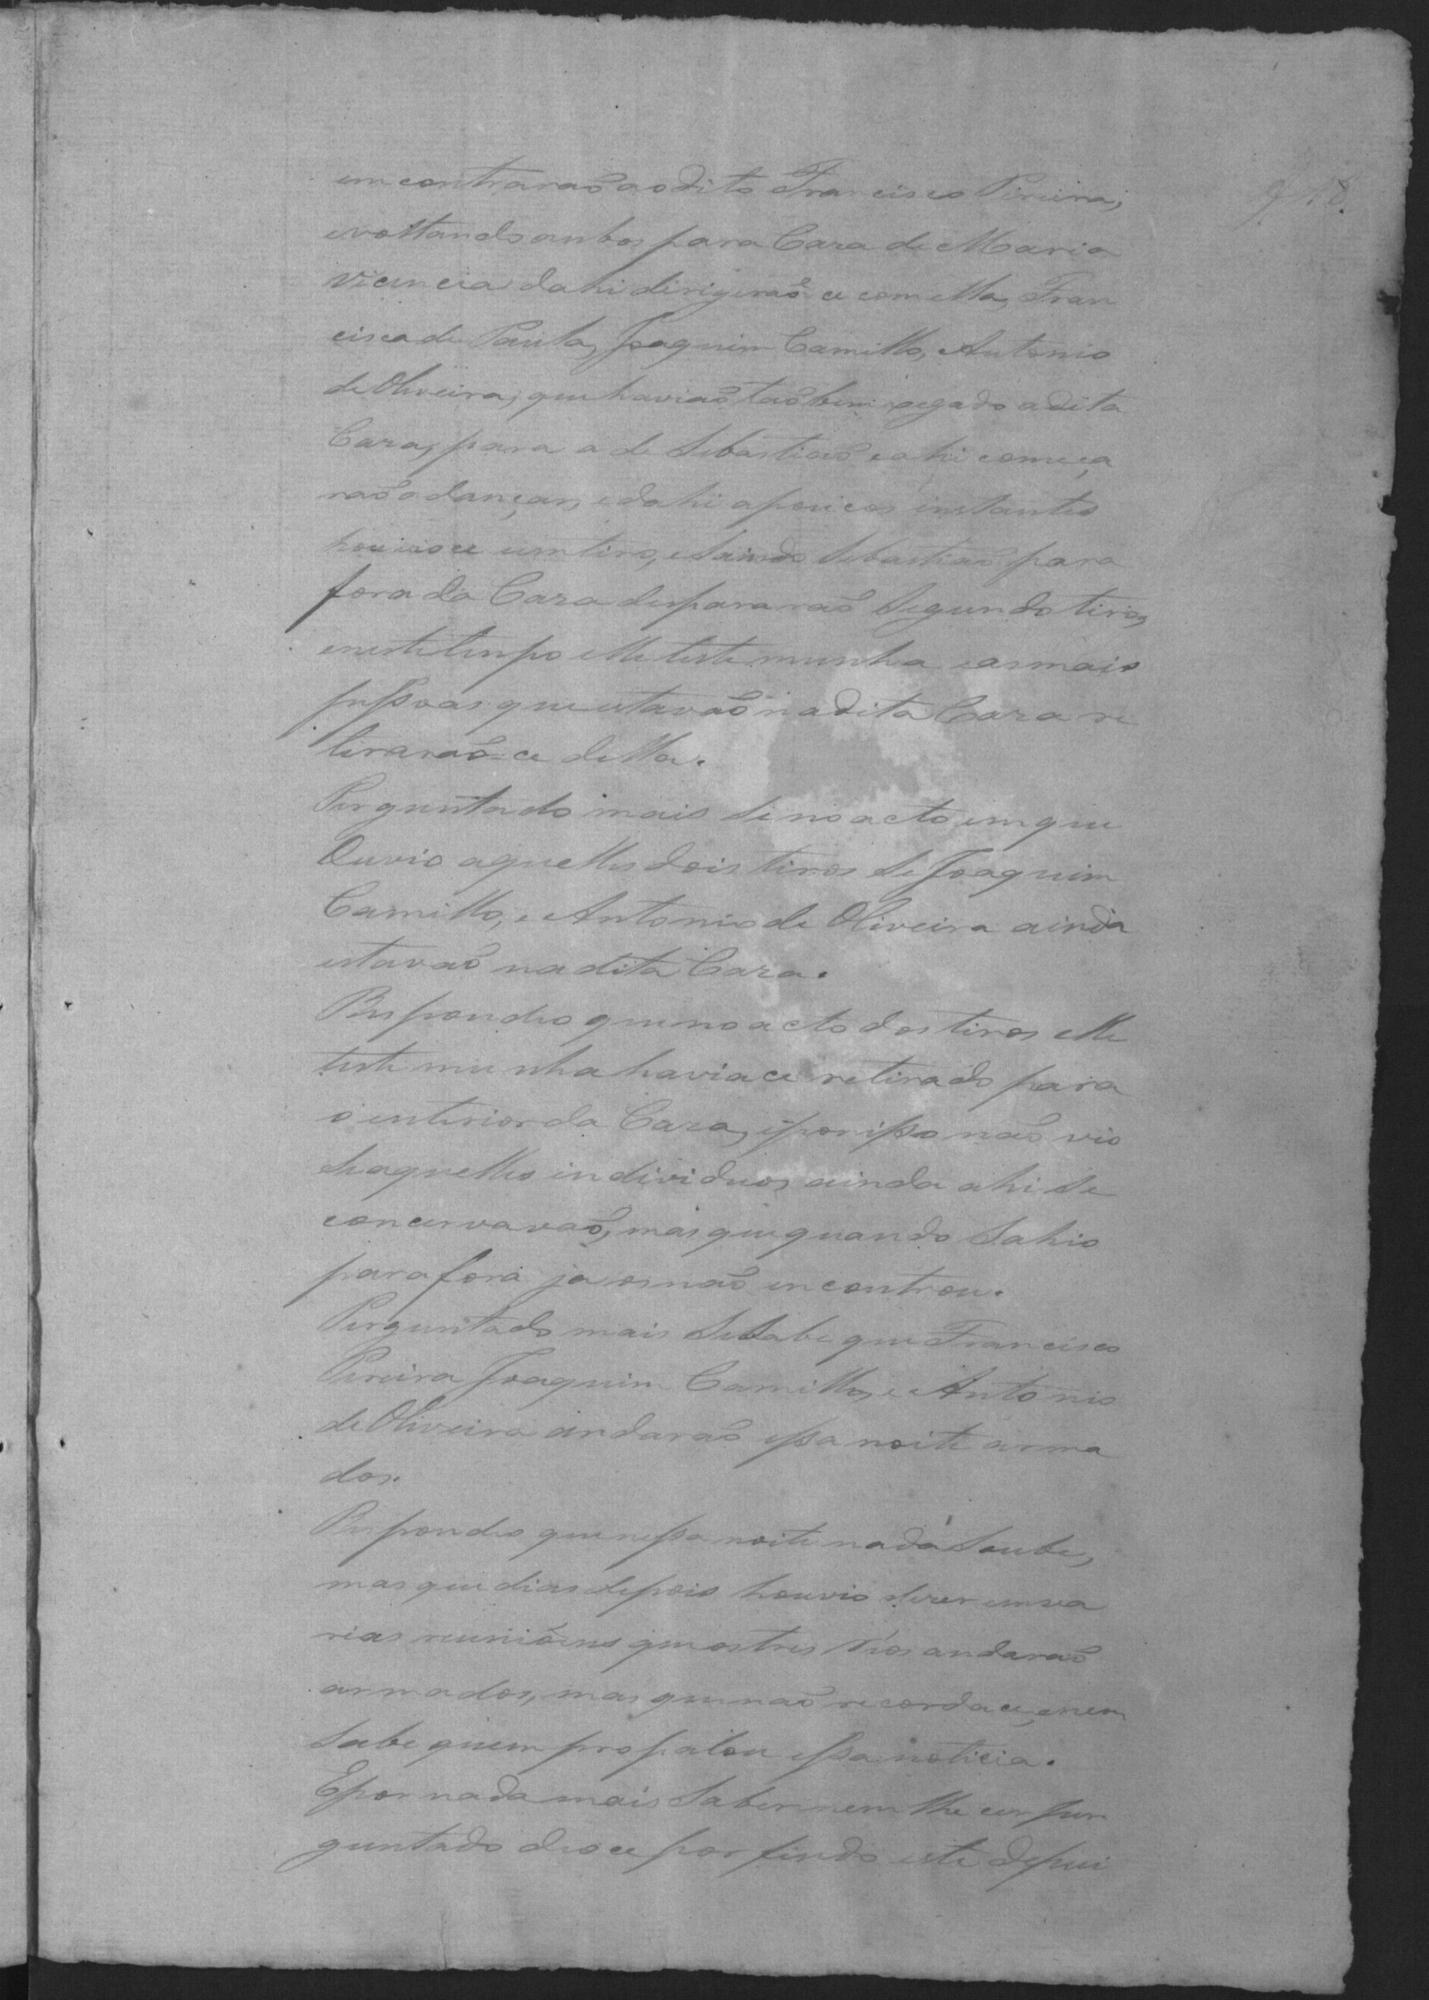 encontrarão ao dito Francisco Pireira,
e voltando anbos para Caza de Maria
Vicencia dahi dirigirão ce com ella, Fran
cisca de Paula, Joaquim Camillo, Antonio
de Oliveira, que havião tãobem xegado a dita
Caza, para a de Sebastião e ahi começa
rão a dançar, e dahi a poucos instantes
houvioce um tiro, e Saindo Sebastião para
fora da Caza dispararão Segundo tiro,
e neste tenpo elle testemunha e as mais
pessoas que estavão na dita Caza re
tirarão-ce della.
Perguntado mais Se no acto em que
Ouvio aquelles dois tiros Se Joaquim
Camillo, e Antonio de Oliveira ainda
estavão na dita Caza.
Respondeo que no acto dos tiros elle
testemunha haviace retirado para
o interior da Caza, e por isso não vio
Se aquelles individuos ainda ahi Se
concervavão, mas que quando Sahio
para fora ja os não encontrou.
Perguntado mais Se Sabe que Francisco
Pireira Joaquim Camillo, e Antonio
de Oliveira andarão essa noite arma
dos.
Respondeo que nessa noite nada Soube,
mas que dias depois houvio dizer em va
rias reuniões que os tres Reos andarão
armados, mas que não recordace, e nem
Sabe quem propalou essa noticia.
E por nada mais Saber nem lhe cer per
guntado deoce por findo este depui